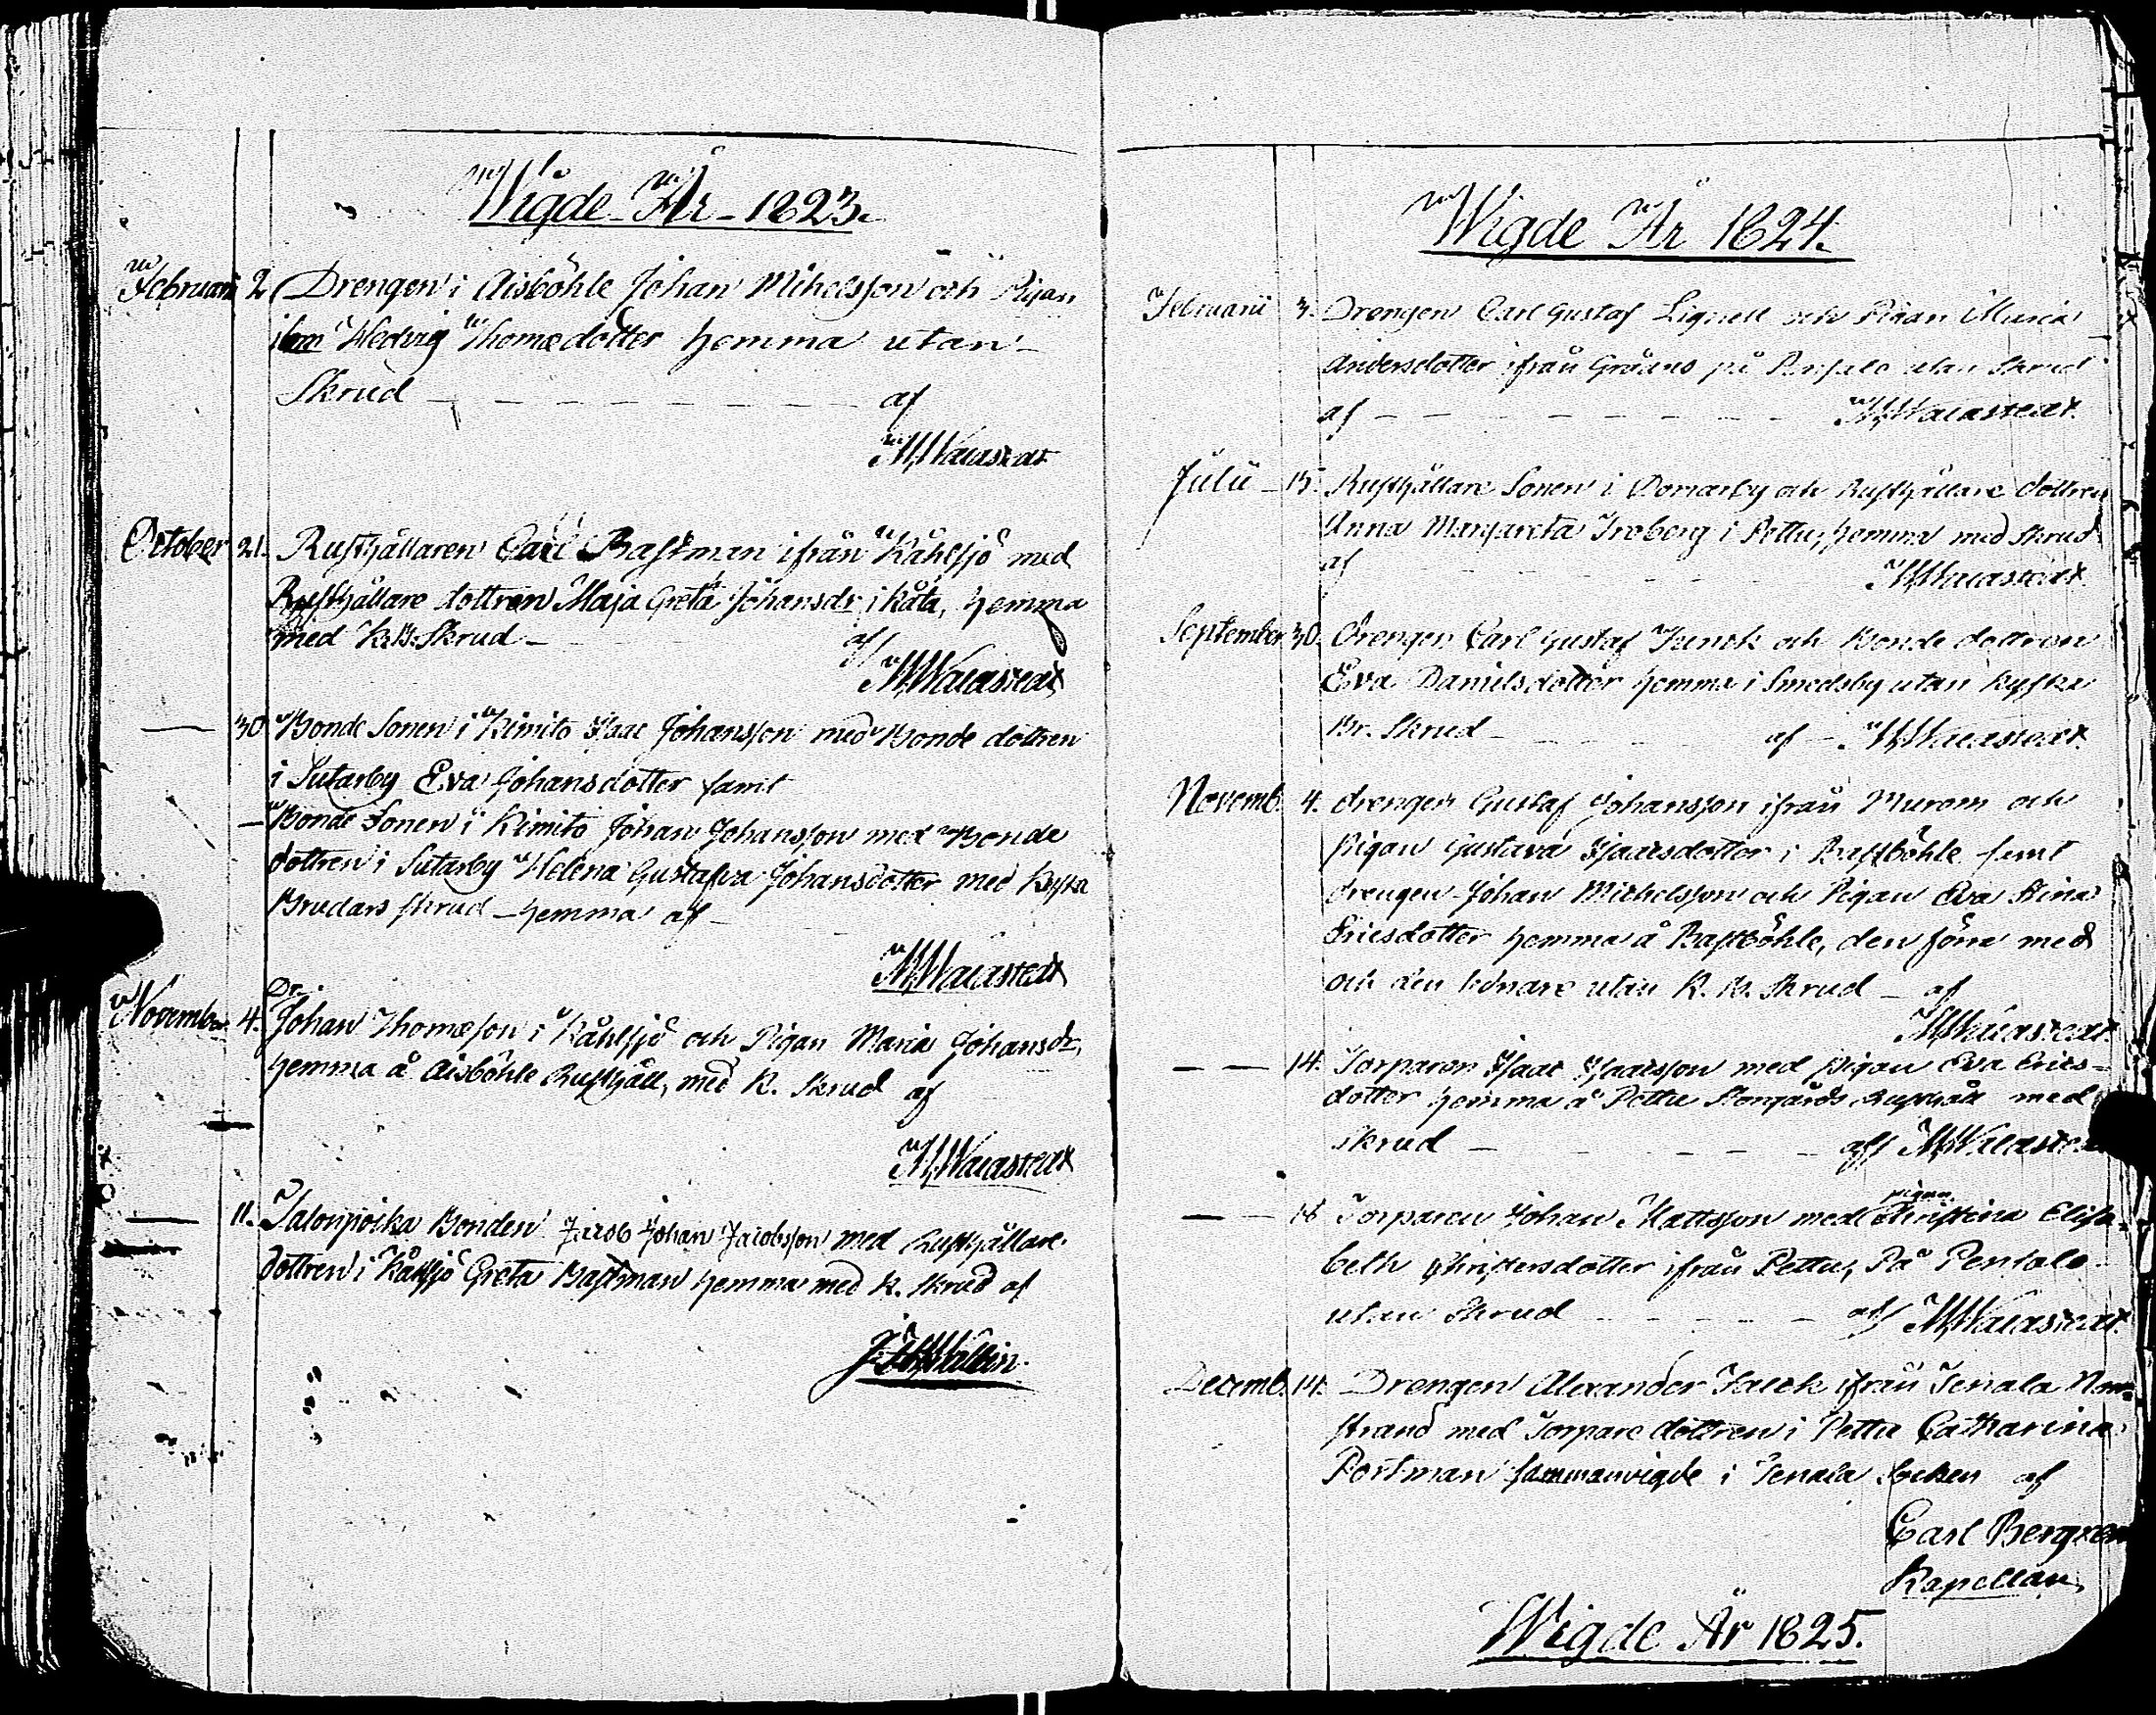 Wigde År 1823.
Februarii 2. Drengen i Aisböhle Johan Mihelsson och Pigan
ibm Hedvig Thomædotter hemma utan
Skrud — af
October 21. Rusthållaren Carl Bastman ifrån Kåhlsjö med
Rusthållare dottren Maja Greta Johansdr i Råta, hemma
med K. B. Skrud — af
— 30. Bonde Sonen i Kimito Isaac Johansson med Bonde dottren
i Sutarby Eva Johansdotter samt
— Bonde Sonen i Kimito Johan Johansson med Bonde
dottren i Sutarby Helena Gustafva Johansdotter med Kyrko
Brudars skrud — hemma af —
Dr.
November 4. Johan Thomæson i Kåhlsjö och Pigan Maria Johansdr,
hemma å Aisböhle Rusthåll, med K. Skrud af
— 11. Talonpoika Bonden Jacob Johan Jacobsson med Rusthållare
dottren i Kåhlsjö Greta Bastman hemma med K. skrud af
Wigde År 1824.
Februarii 3. Drengen Carl Gustaf Lignell och Pigan Maria
Andersdotter ifrån på utan Skrud
af —
Julii — 15. Rusthållare Sonen i och Rusthållare dottren
Anna Margareta i Pettu, hemma med Skrud
af
September 30. drengen Carl Gustaf och Bonde dottren
Eva Danielsdotter hemma i Smedsby utan Kyrko
Br. Skrud — af —
Novemb. 4. drengen Gustaf Johansson ifrån och
pigan Gustava Isaacsdotter i Bastböhle samt
drengen Johan Michelsson och Pigan Eva Stina
Ericsdotter hemma å Bastböhle, den förra med
och den senare utan K. B. Skrud — af
— — 14. Torparen Isaac Isaacsson med pigan Eva Erics-
dotter hemma å Pettu Storgårds Rusthåll med
Skrud — af
pigan
— — 18 Torparen Johan Mattsson med Christina Elisa-
beth Christersdotter ifrån Pettu, På Pentalo
utan Skrud — af
Decemb. 14. Drengen Alexander Falck ifrån Tenala
strand med Torpare dottren i Pettu Catharina
Portman sammanvigde i Tenala Socken af
Carl Bergren
Kapellan.
Wigde År 1825.